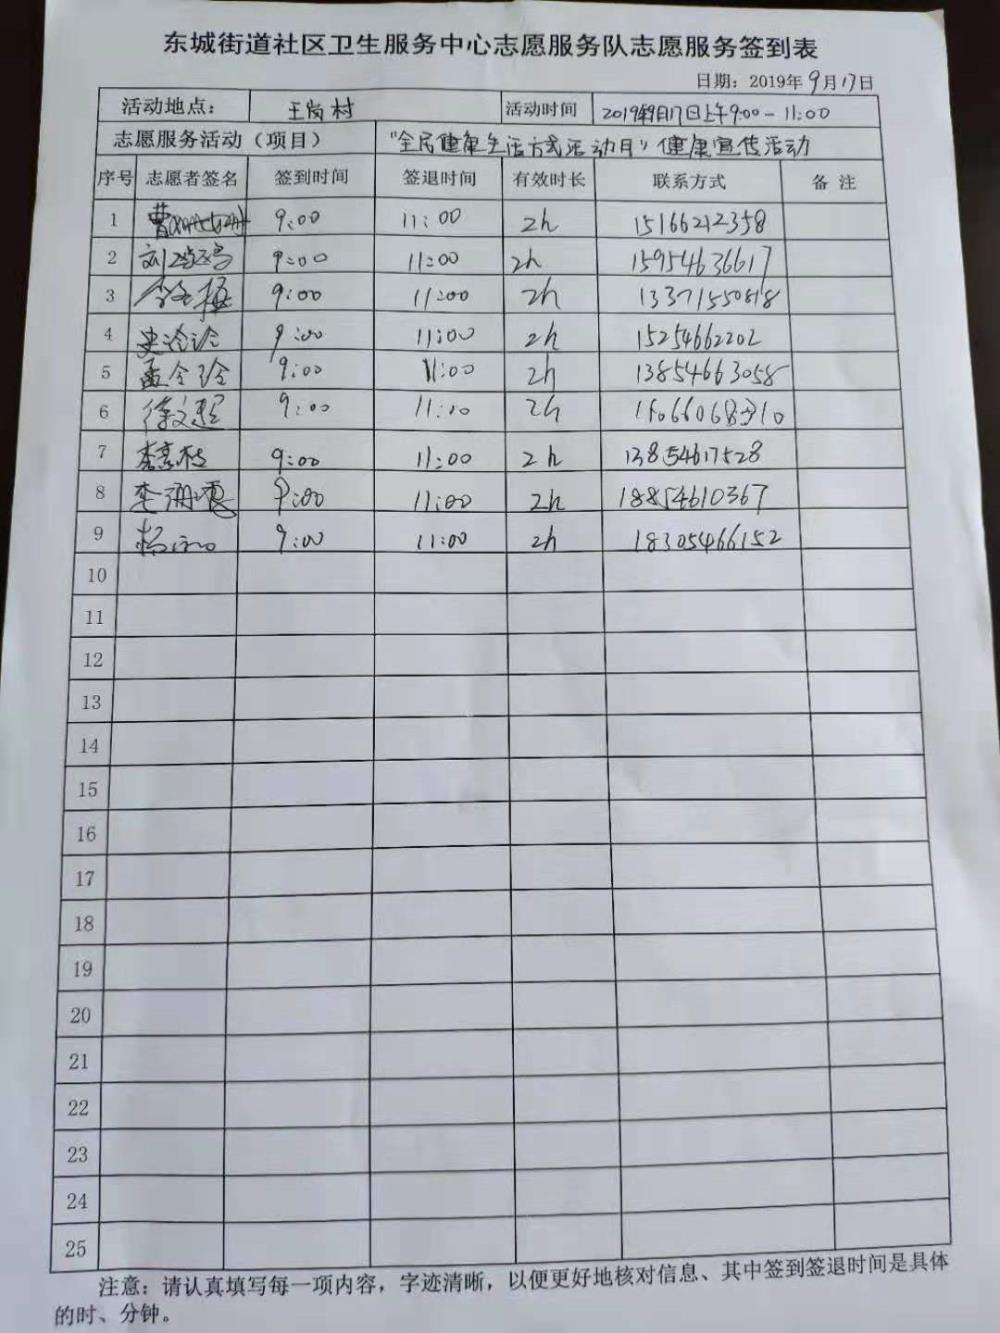 东城街道社区卫生服务中心志愿服务队志愿服务签到表
日期：2019年9月17日
活动地点： 王岗村 活动时间 2019年9月17日上午9:00-11:00
志愿服务活动（项目） "全民健康生活方式活动月"健康宣传活动
序号 志愿者签名 签到时间 签退时间 有效时长 联系方式 备 注
1 曹 9:00 11:00 2h 15166212358
2 刘 9:00 11:00 2h 15954636617
3 9:00 11:00 2h 13371550818
4 史 9:00 11:00 2h 15254662202
5 孟令玲 9:00 11:00 2h 13854663058
6 徐文 9:00 11:10 2h
7 李 9:00 11:00 2h 13854617528
8 李 9:00 11:00 2h 18854610367
9 杨 9:00 11:00 2h 18305466152
10
11
12
13
14
15
16
17
18
19
20
21
22
23
24
25
注意：请认真填写每一项内容，字迹清晰，以便更好地核对信息、其中签到签退时间是具体
的时、分钟。